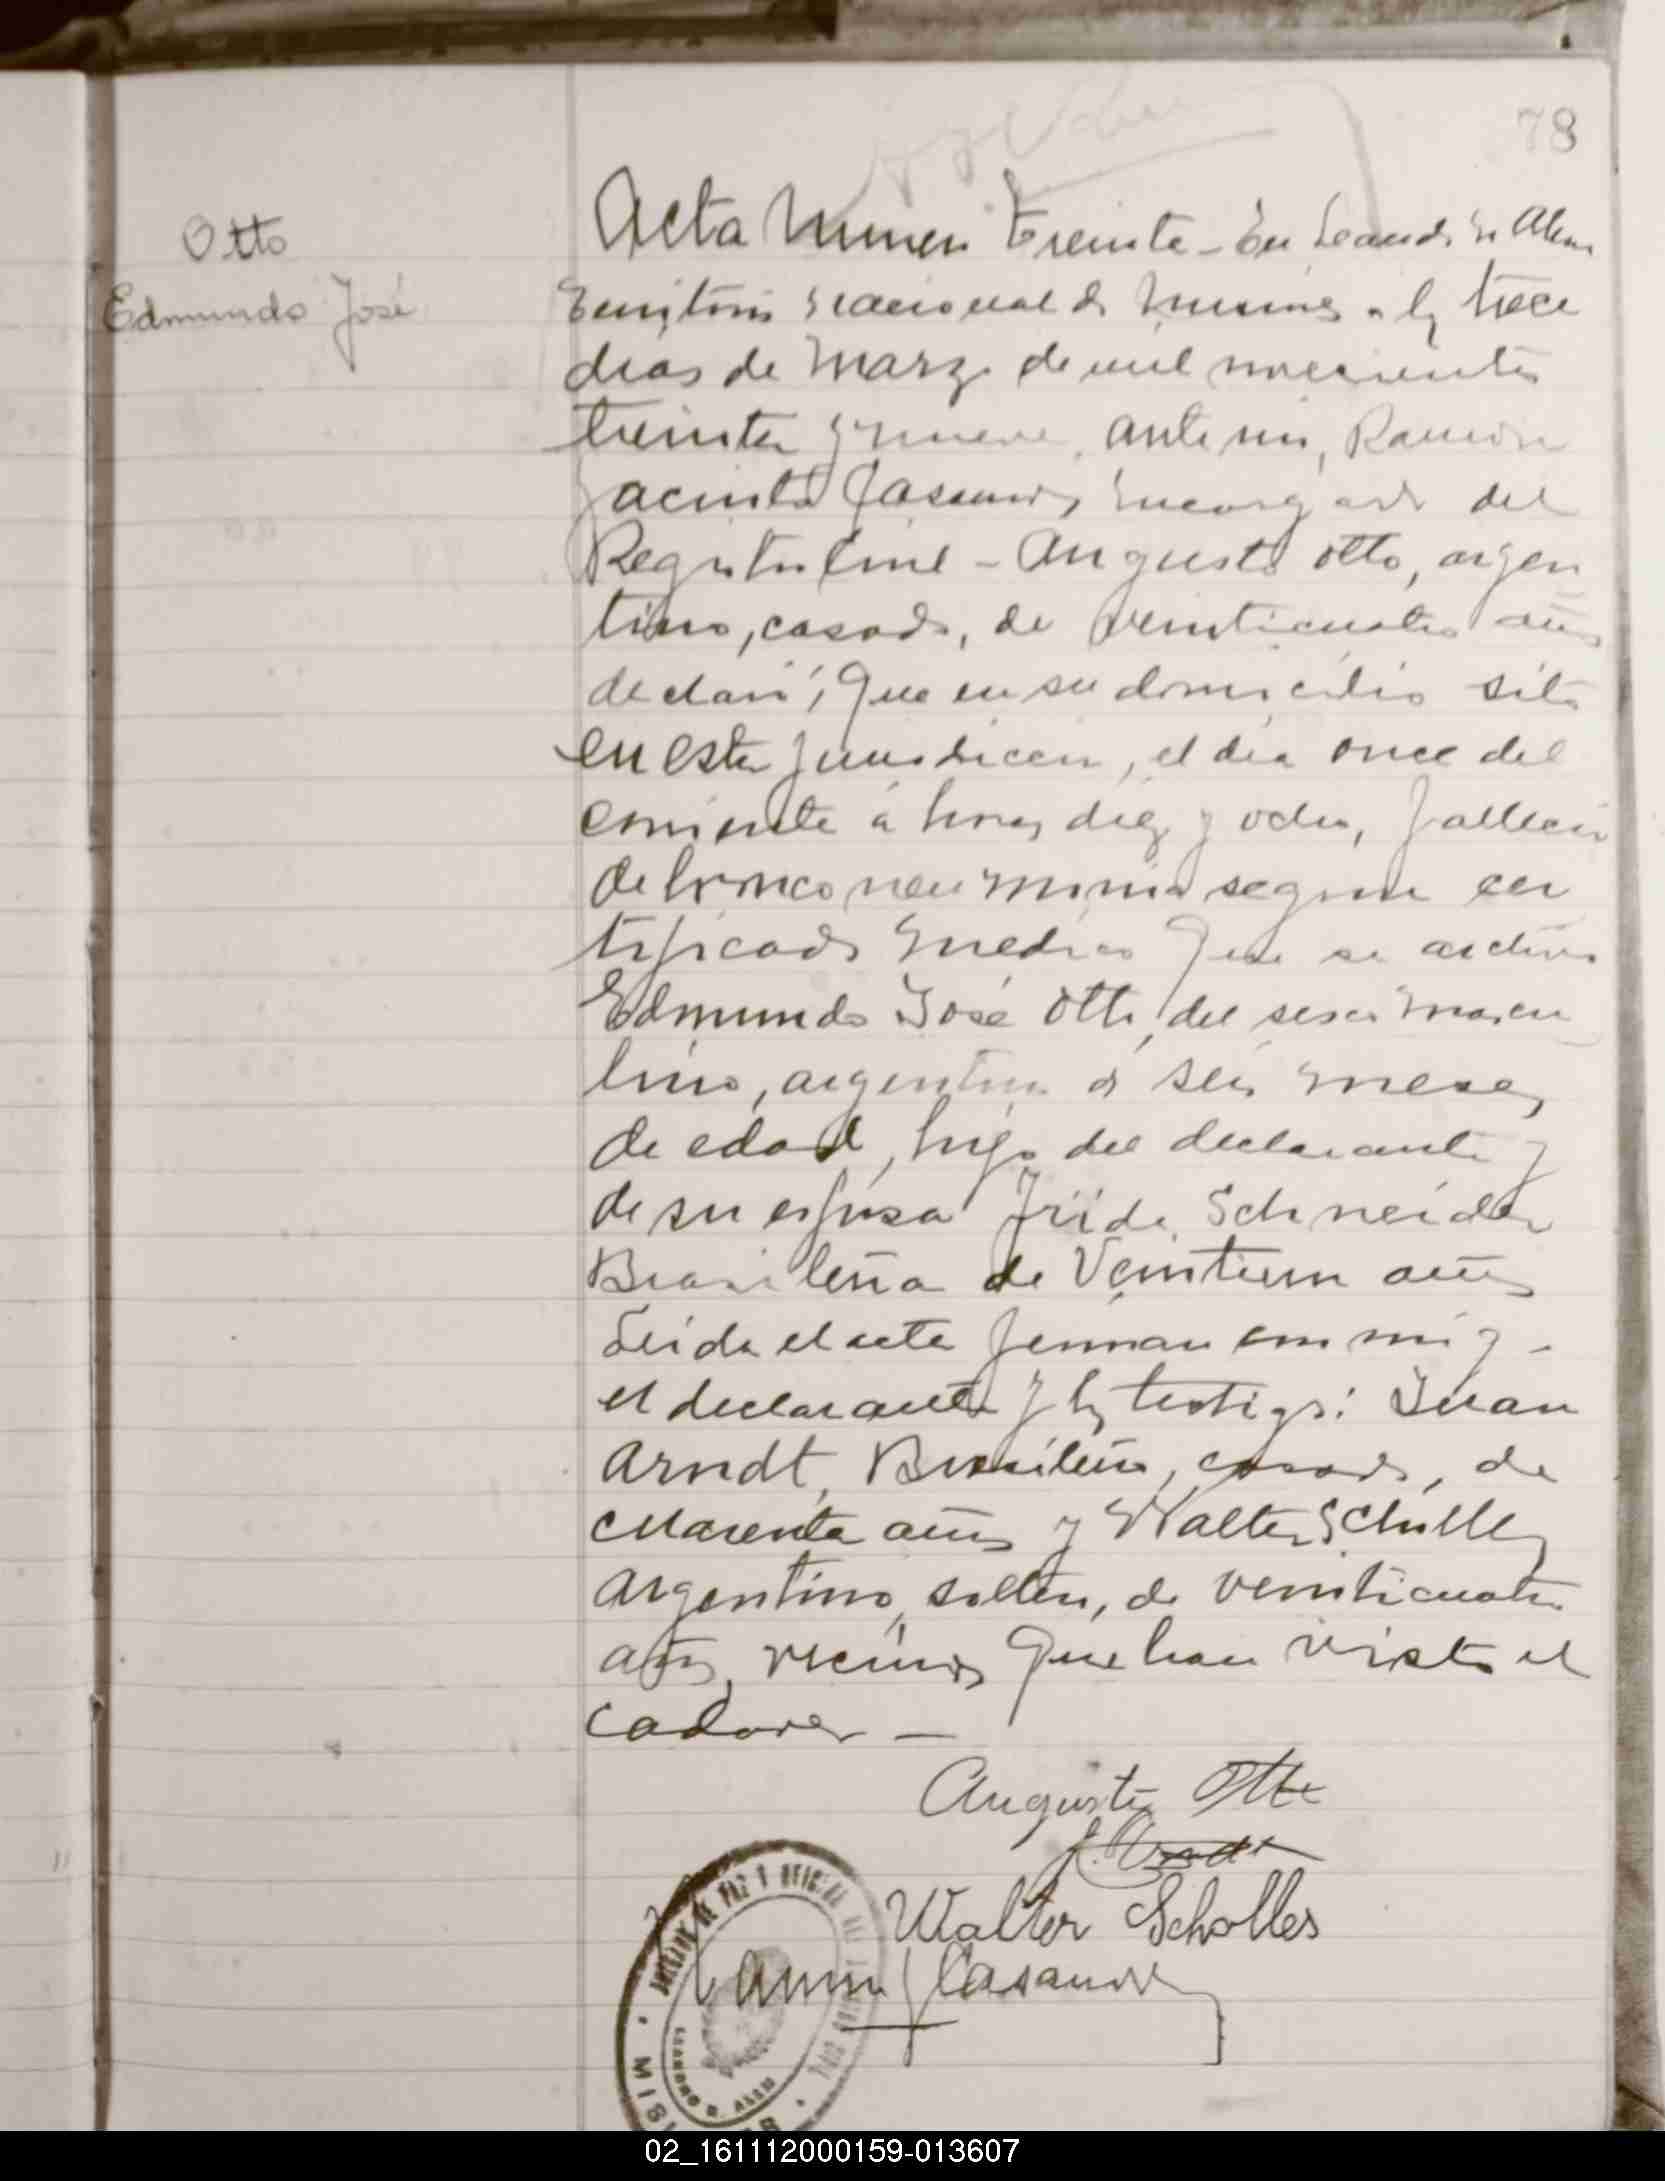 78
Otto
Edmundo José
Acta Numero Treinta - En Leandro N Alem
Territorio Nacional de Misiones a los trece
dias de Marzo de mil novecientos
treinta y nueve, ante mi, Ramón
Jacinto Casanova, Encargado del
Registro Civil - Augusto Otto, argen
tino, casado, de veinticuatro años
declaró; Que en su domicilio sito
en esta jurisdiccion, el dia once del
corriente á horas diez y ocho, falleció
de bronconeumonia segun cer
tificado medico que se archiva
Edmundo José Otto, del sexo mascu
lino, argentino de seis meses
de edad, hijo del declarante y
de su esposa Frida Schneider
Brasileña de Veintiun años
Leida el acta firman con mi
el declarante y los testigos: Juan
Arndt, Brasileño, casado, de
cuarenta años y Walter Scholles
Argentino, soltero, de veinticuatro
años, vecinos que han visto el
cadaver -
Augusto Otto
J. Arndt
Walter Scholles
Ramón J Casanova
JUZGADO DE PAZ Y OFICINA DEL REGISTRO CIVIL
LEANDRO N. ALEM
MISI
02_161112000159-013607